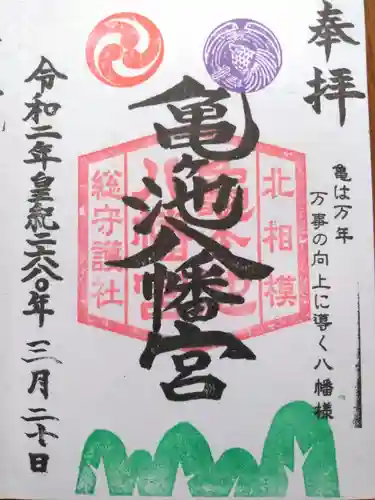 奉拝
亀は万年
万事の向上に導く八幡様
北相模
亀ヶ池八幡宮
総守護社
令和二年皇紀二六八〇年 三月二十日